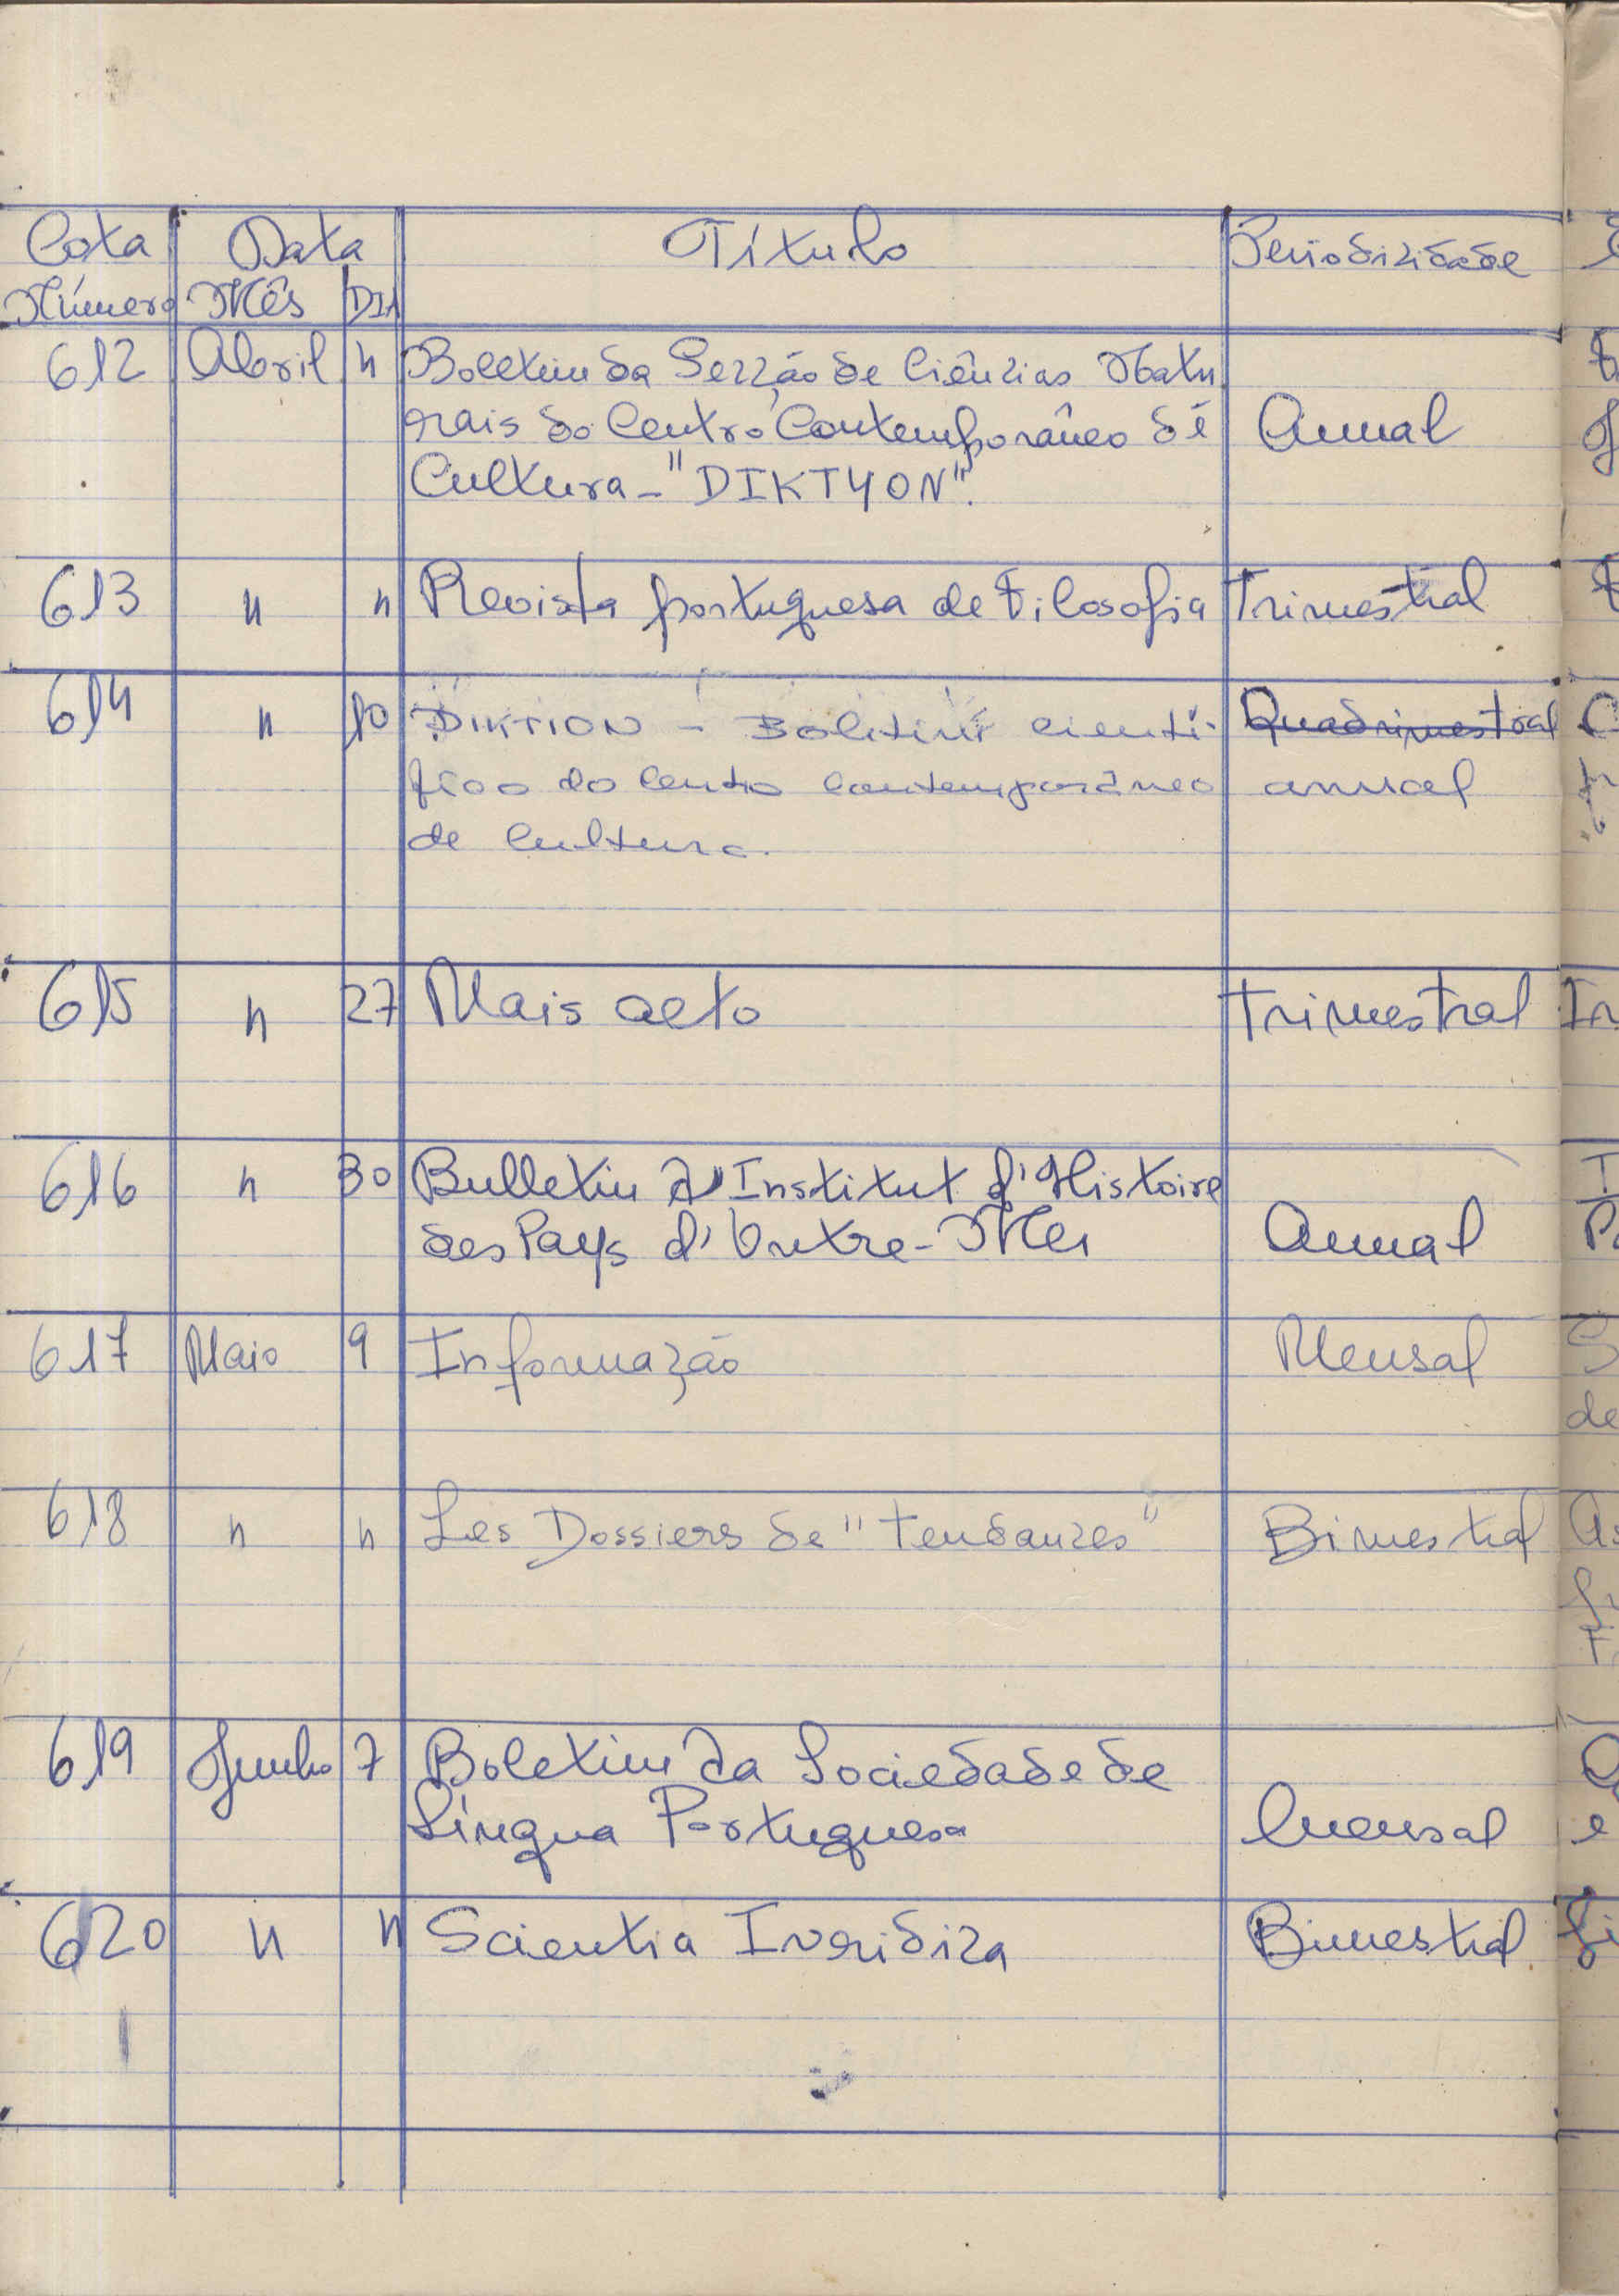 Cota Data Título Periodicidade
Número Mês DIA
612 Abril " Boletim da Secção de Ciências Natu
rais do Centro Contemporâneo de Anual
Cultura - "DIKTYON".
613 " " Revista portuguesa de Filosofia Trimestral
614 " 10 DIKTION - Boletim cientí- Quadrimestral
fico do Centro Contemporâneo anual
de Cultura.
615 " 27 Mais alto Trimestral In
616 " 30 Bulletin d'Institut d'Histoire
des Pays d'Outre-Mer Anual
617 Maio 9 Informação Mensal
de
618 " " Les Dossiers de "Tendances" Bimestral As
619 Junho 7 Boletim da Sociedade de
Língua Portuguesa Mensal e
620 " " Scientia Iuridica Bimestral